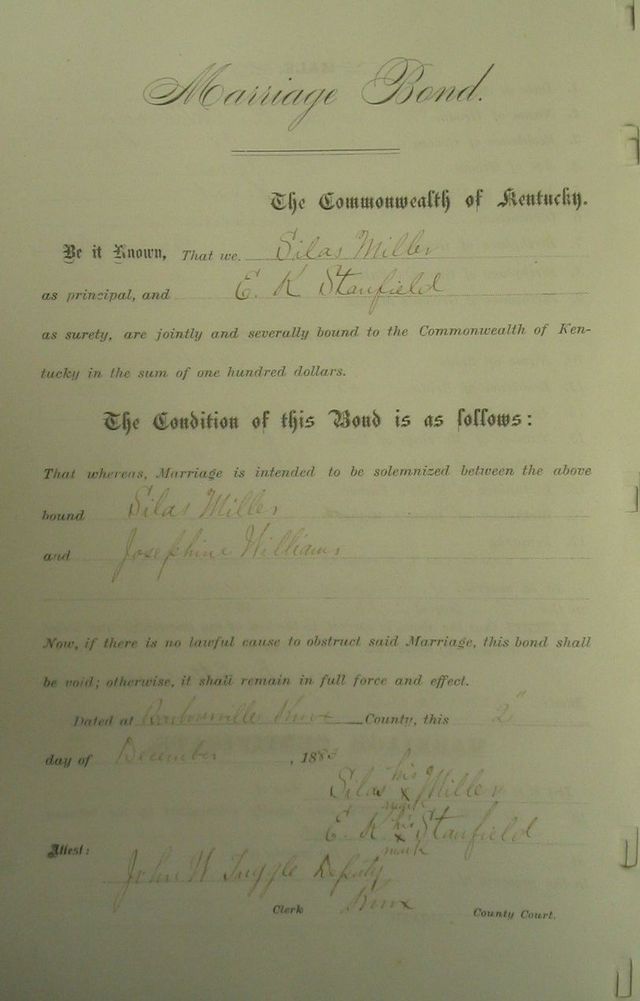 Marriage Bond.
The Commonwealth of Kentucky.
Be it Known, That we. Silas Miller
as principal, and E. K Stanfield
as surety, are jointly and severally bound to the Commonwealth of Ken-
tucky in the sum of one hundred dollars.
The Condition of this Bond is as follows:
That whereas, Marriage is intended to be solemnized between the above
bound Silas Miller
and Josephine Williams
Now, if there is no lawful cause to obstruct said Marriage, this bond shall
be void; otherwise, it shall remain in full force and effect.
Dated at Barbourville Knox County, this 2"
day of December, 1883
his
Silas x Miller
mark
his
E. K x Stanfield
mark
Attest:
John W Tuggle Deputy
Clerk Knox County Court.